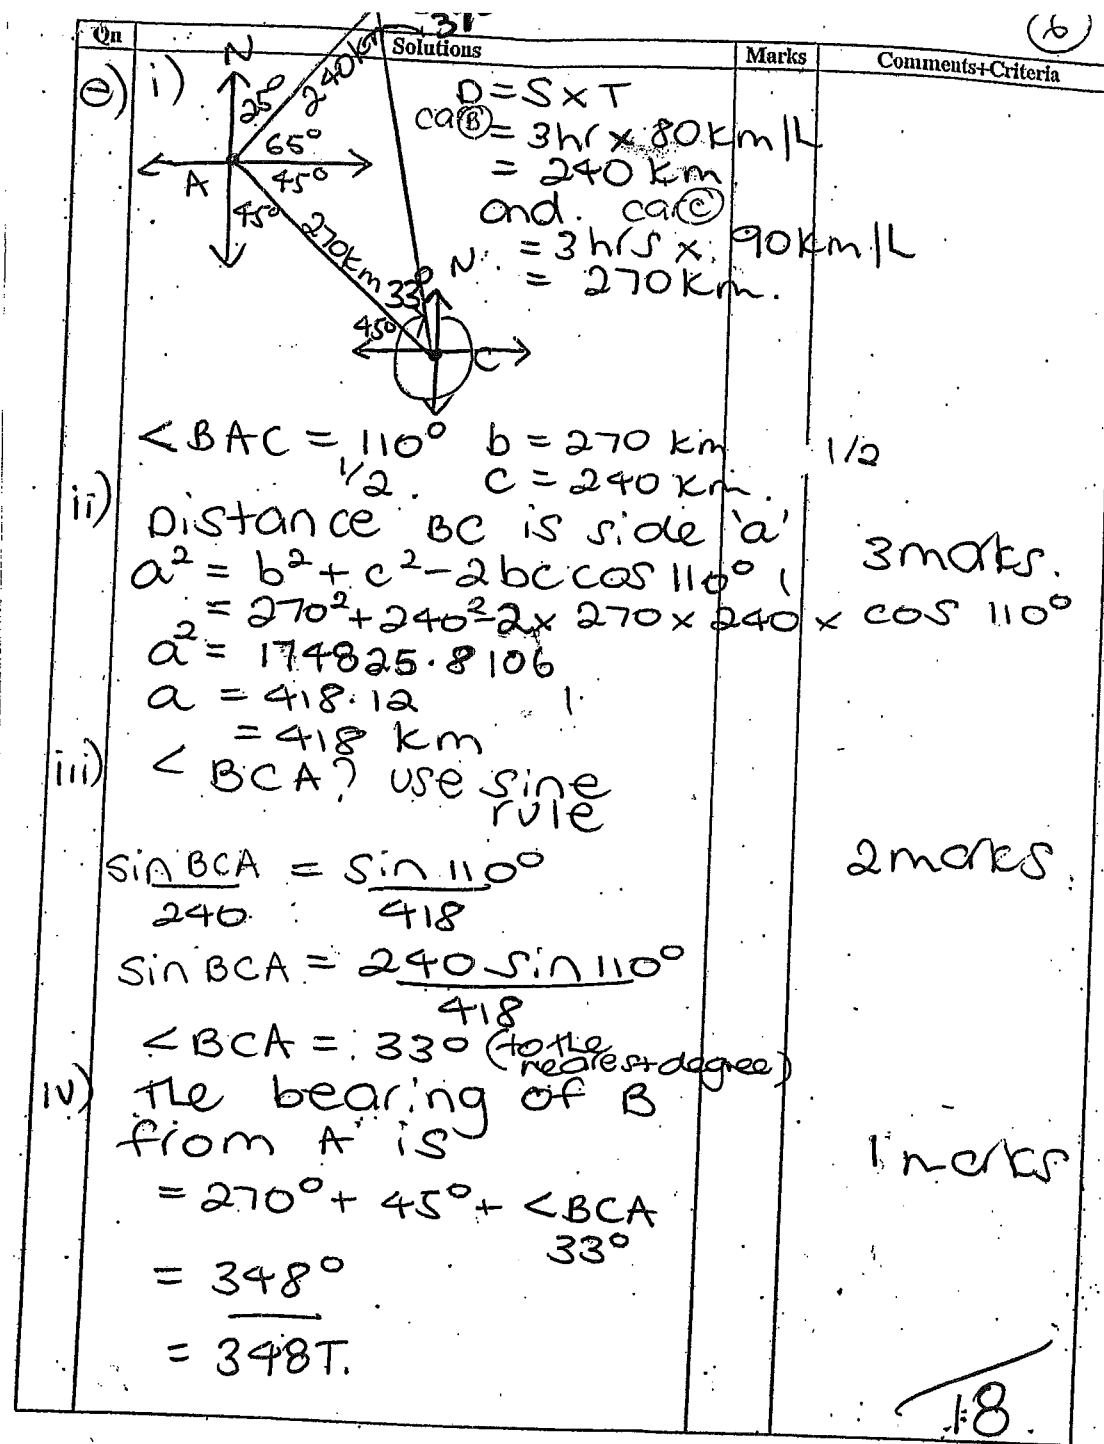 6
Qn Solutions Marks Comments+Criteria
e) i)
N
25°
240k
65°
A
45°
45°
270km
33°
N
45°
C
D = S x T
car B = 3hr x 80km/h
= 240 km
and. car C
= 3 hrs x 90km/h
= 270km.
<BAC = 110° b = 270 km 1/2
1/2. c = 240 km.
ii) Distance BC is side 'a'
3 marks.
a² = b² + c² - 2bc cos 110° 1
= 270² + 240² - 2 x 270 x 240 x cos 110°
a² = 174825.8106
a = 418.12 1
= 418 km
iii) < BCA? use sine
rule
sin BCA / 240 = sin 110° / 418
2 marks.
sin BCA = 240 sin 110° / 418
<BCA = 33° (to the
nearest degree)
iv) The bearing of B
from A is
1 marks
= 270° + 45° + <BCA
33°
= 348°
= 348T.
18.